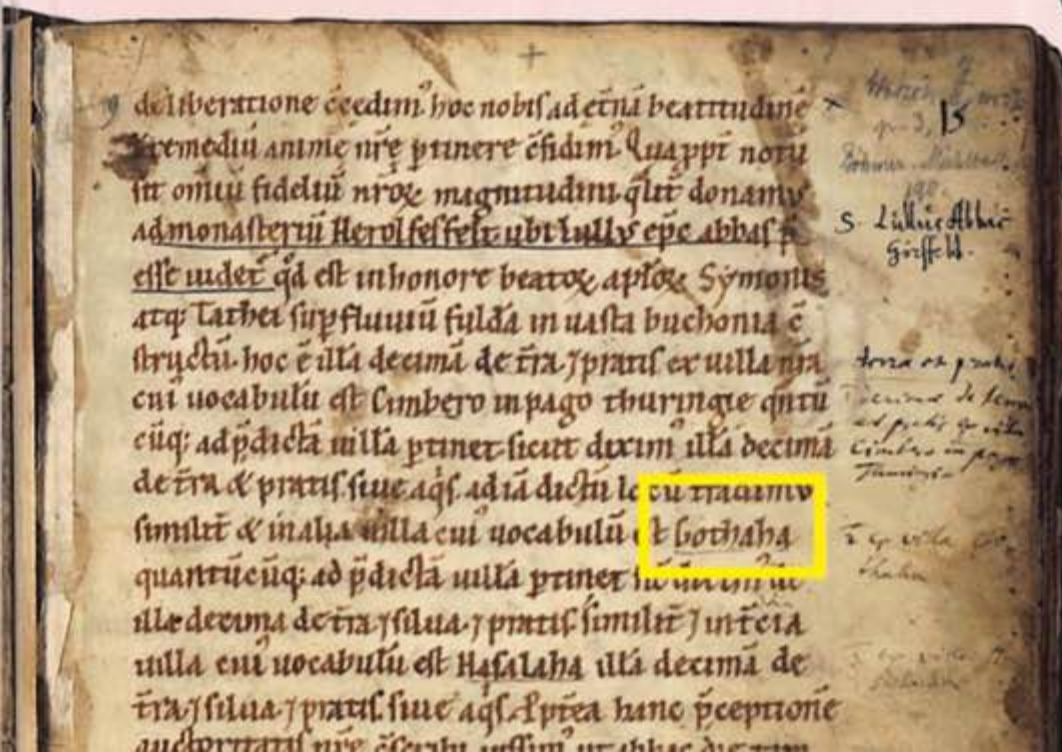 deliberatione c̄cedim᾽ hoc nobiſ ad et̄nā beatitudinē
remediū animę nr̄e ꝑtinere c̄fidim᾽. Quapp̄t notū
ſit omiū fideliū nr̄oꝝ magnitudini. qlit̄ donamꝰ
ad monaſteriū Herolfeſfelt. ubi Lullꝰ ep̄c abbaſ
eſſe uidet᾽ qd̄ est in honore beatoꝝ aplōꝝ Symonis
atq; Tathei ſup̄ fluuiū fuldā in uaſta buchonia c̄
ſtructū. hoc ē illā decimā de t̄ra ⁊ pratiſ ex uilla nr̄a
cui uocabulū eſt Cimbero in pago thuringie qn̄tū
cūq; ad p̄dictā uillā ꝑtinet. ſicut dixim᾽ illā decimā
de t̄ra & pratiſ. ſiue aqſ. ad iā dictū locū tradimꝰ
similit̄ & in alia uilla cui uocabulū eſt Gothaha
quantūcūq; ad p̄dictā uillā ꝑtinet
illa decima de t̄ra ⁊ ſilua. ⁊ pratiſ. ſimilit̄ ⁊ in t̄cia
uilla cui uocabulū eſt Haſalaha illā decimā de
t̄ra ⁊ ſilua. ⁊ pratiſ. ſiue aqſ. & p̄tea hanc p̄ceptionē
auctoritatiſ nr̄e
15
S. Lullus Abbas
terra et pratis